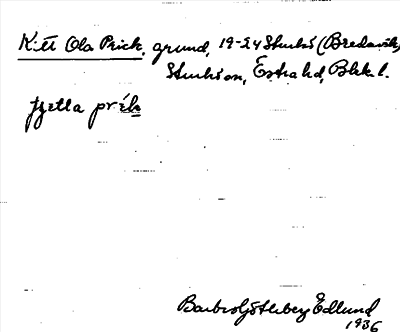 Kitt Ola Prick, grund, 19-24 Sturkö (Bredavik,
Sturkö sn, Östra hd, Blek. l.
Barbro Götherberg Edlund
1936